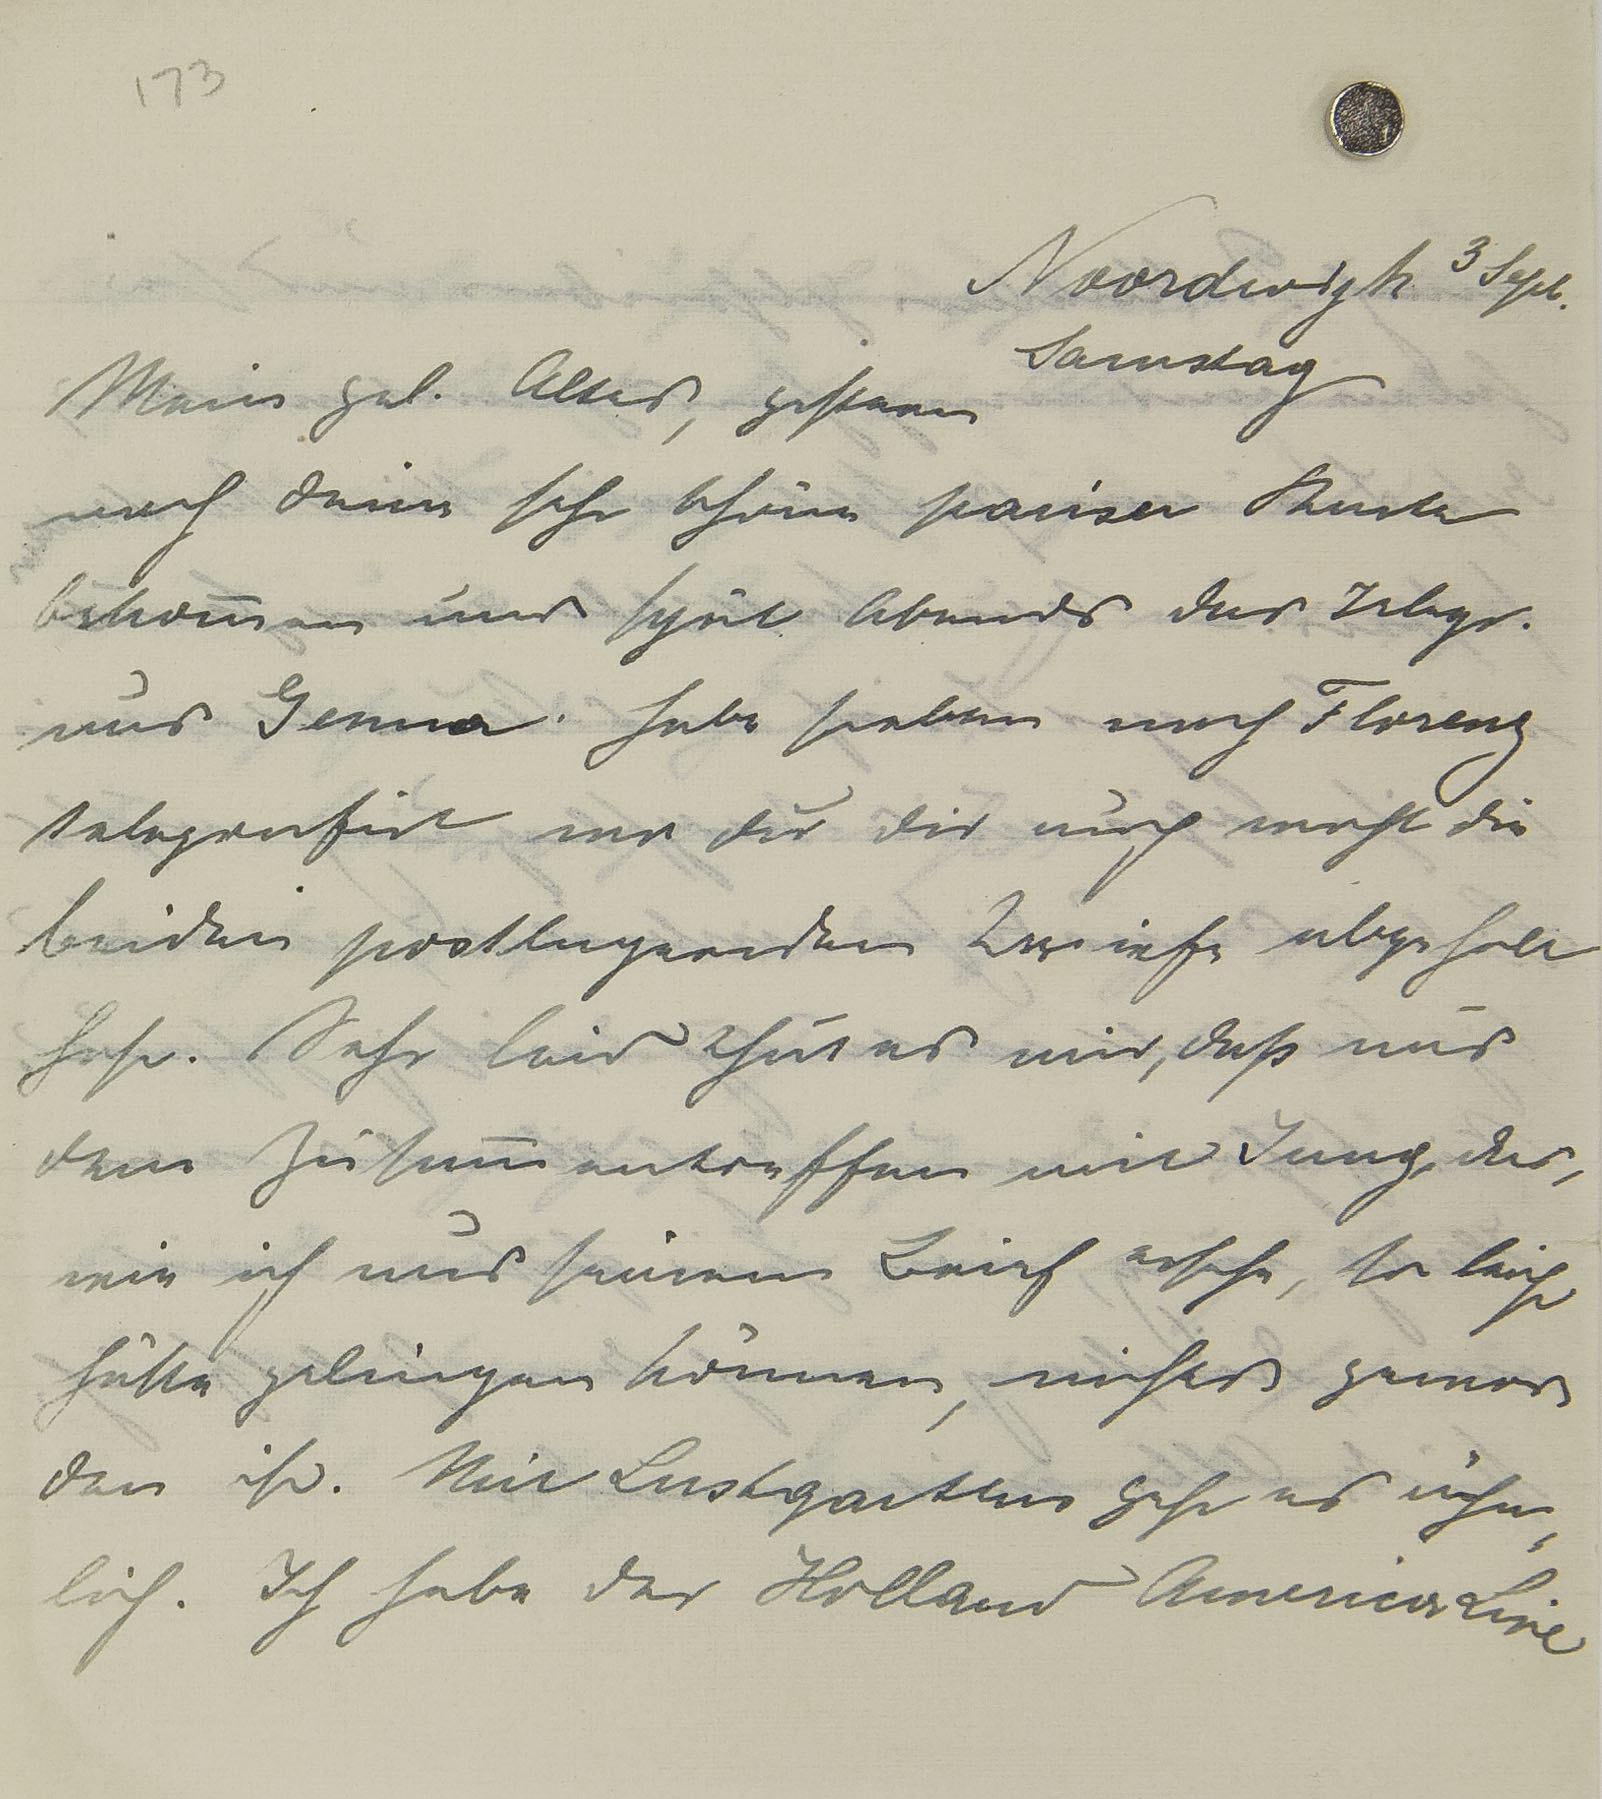 173
Noordwijk 3 Sept.
Samstag
Mein gel. Alter, gestern
noch deine sehr schöne pariser Karte
bekom̄en und spät Abends das Telegr.
aus Genua. Habe soeben nach Florenz
telegrafirt wo du dir auch wohl die
beiden postlagernden Briefe abgeholt
hast. Sehr leid thut es mir, daß aus
dem Zusam̄entreffen mit Jung, das,
wie ich aus seinem Brief ersehe, so leicht
hätte gelingen können, nichts gewor
den ist. Mit Lustgarten geht es ähn,
lich. Ich habe der Holland America Line